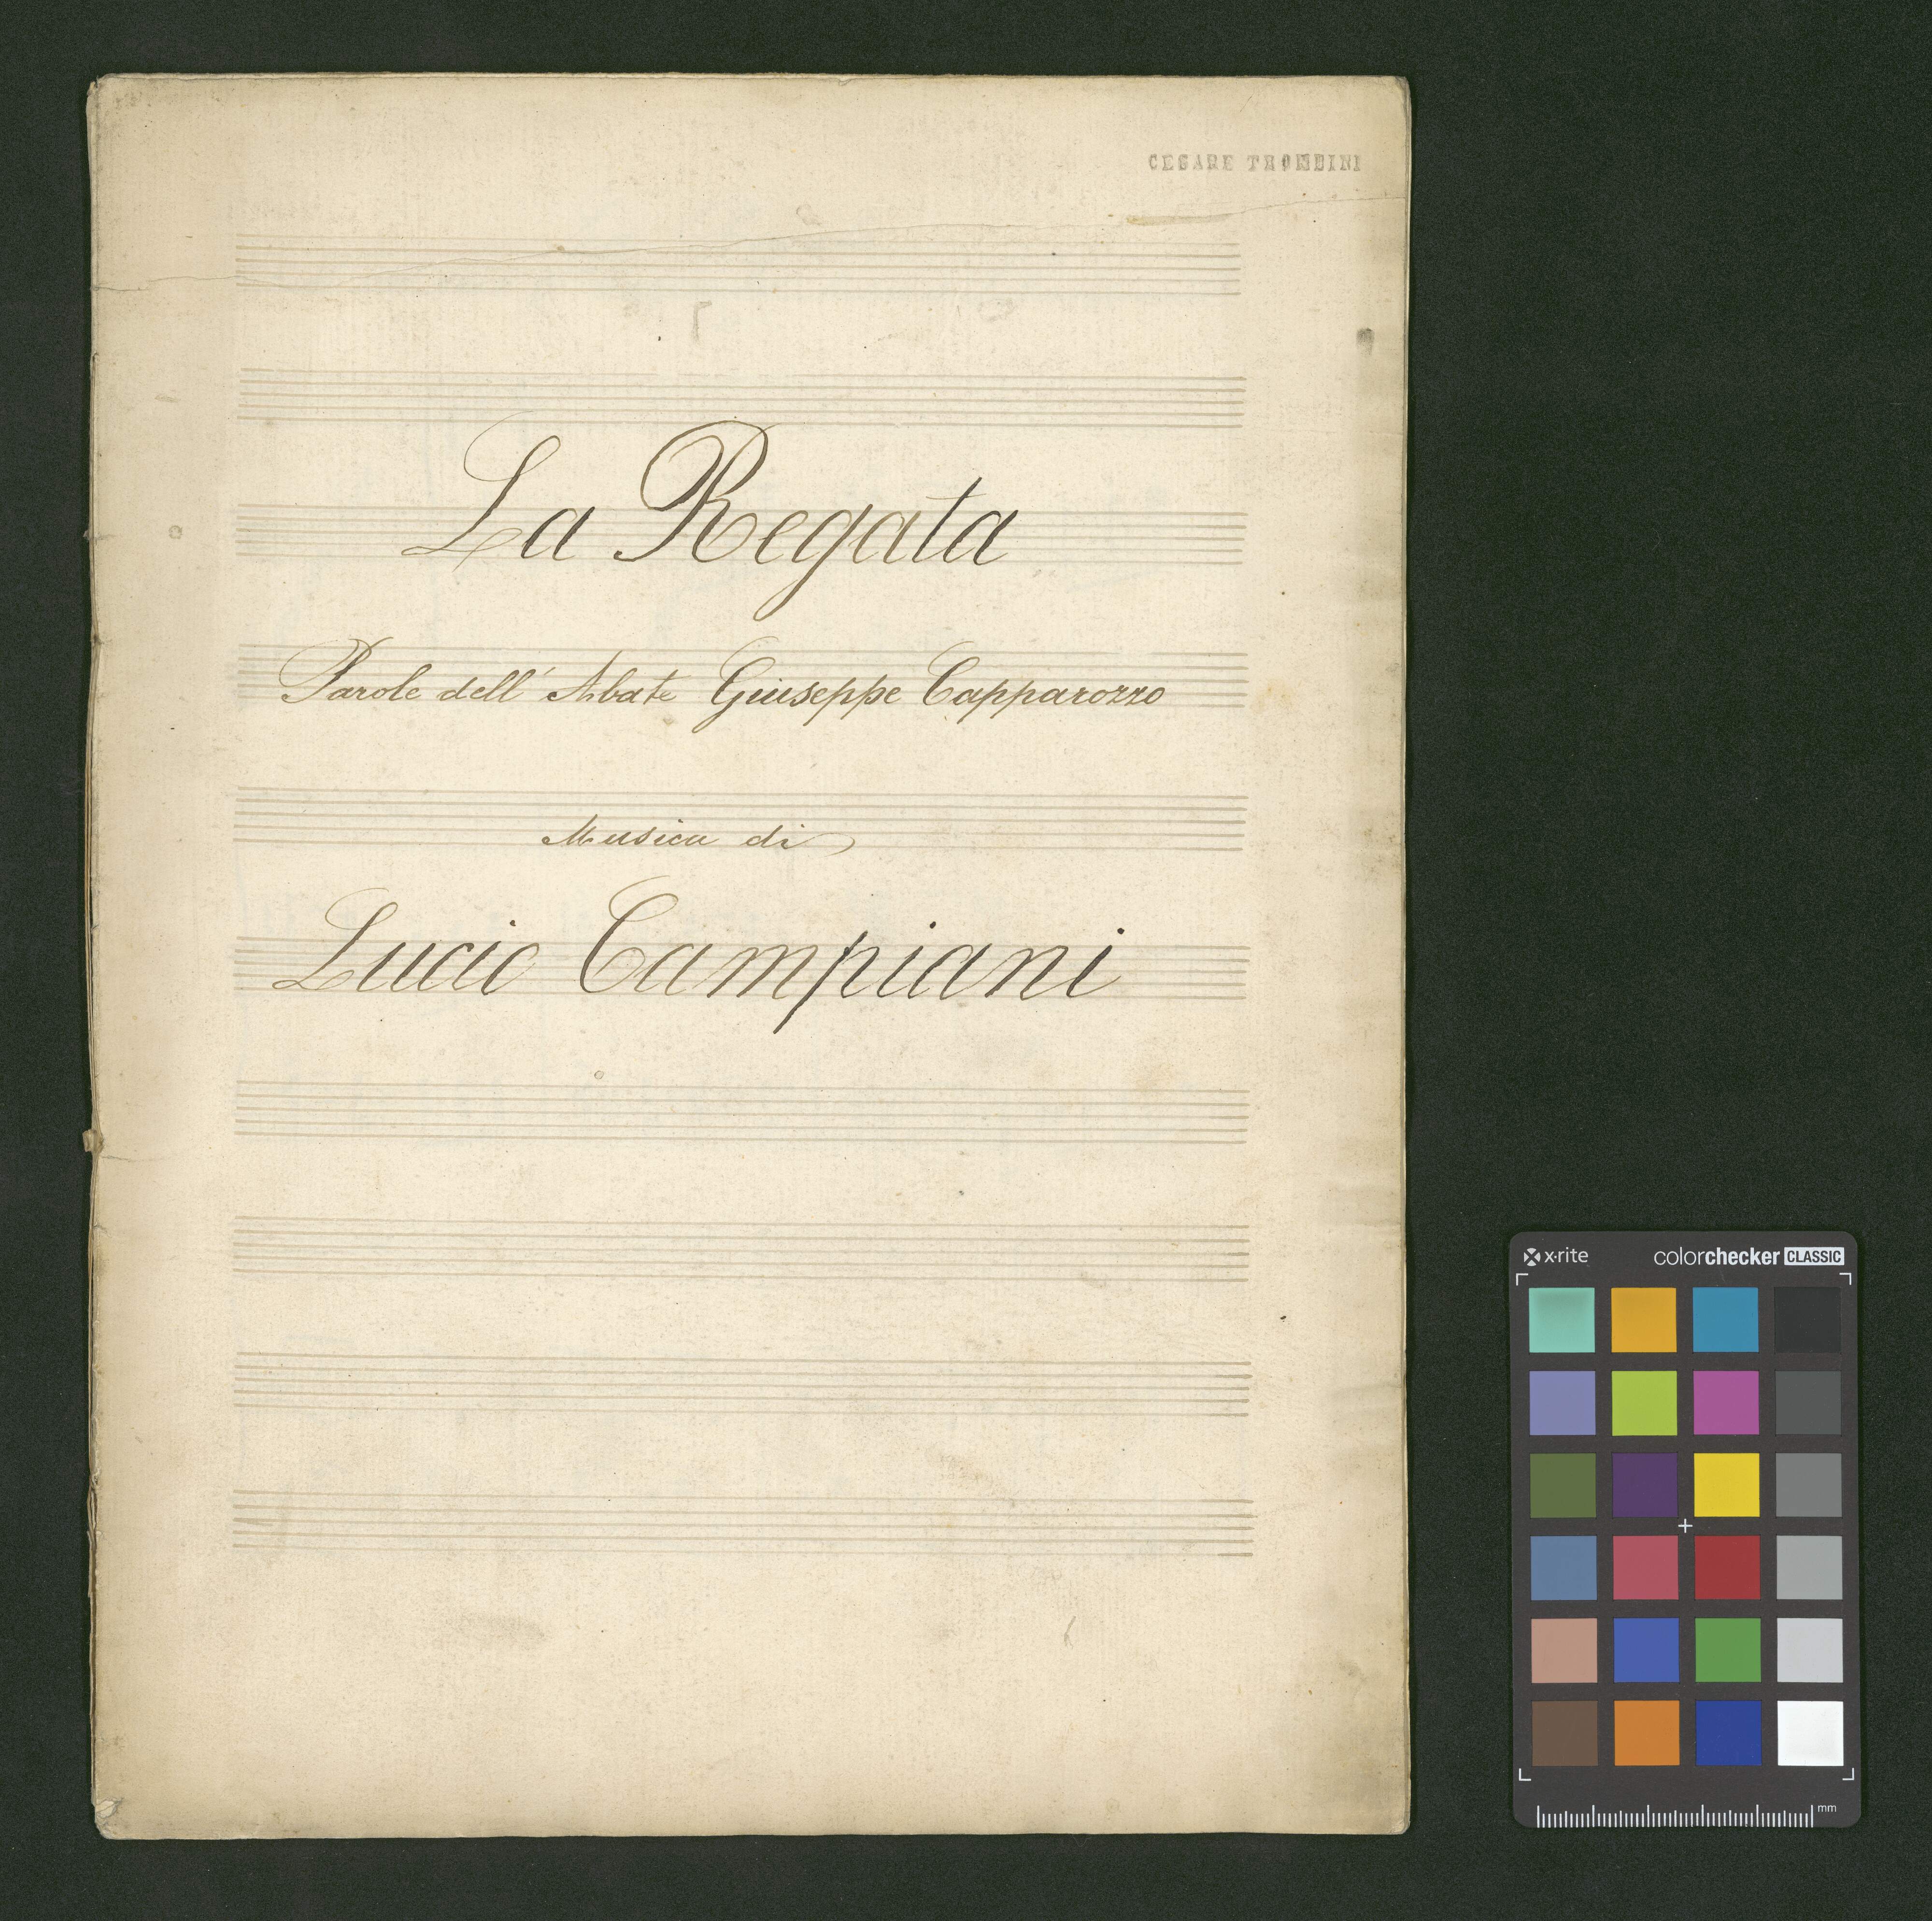 CESARE TROMBINI
La Regata
Parole dell' Abate Giuseppe Capparozzo
Musica di
Lucio Campiani
x·rite colorchecker CLASSIC
mm